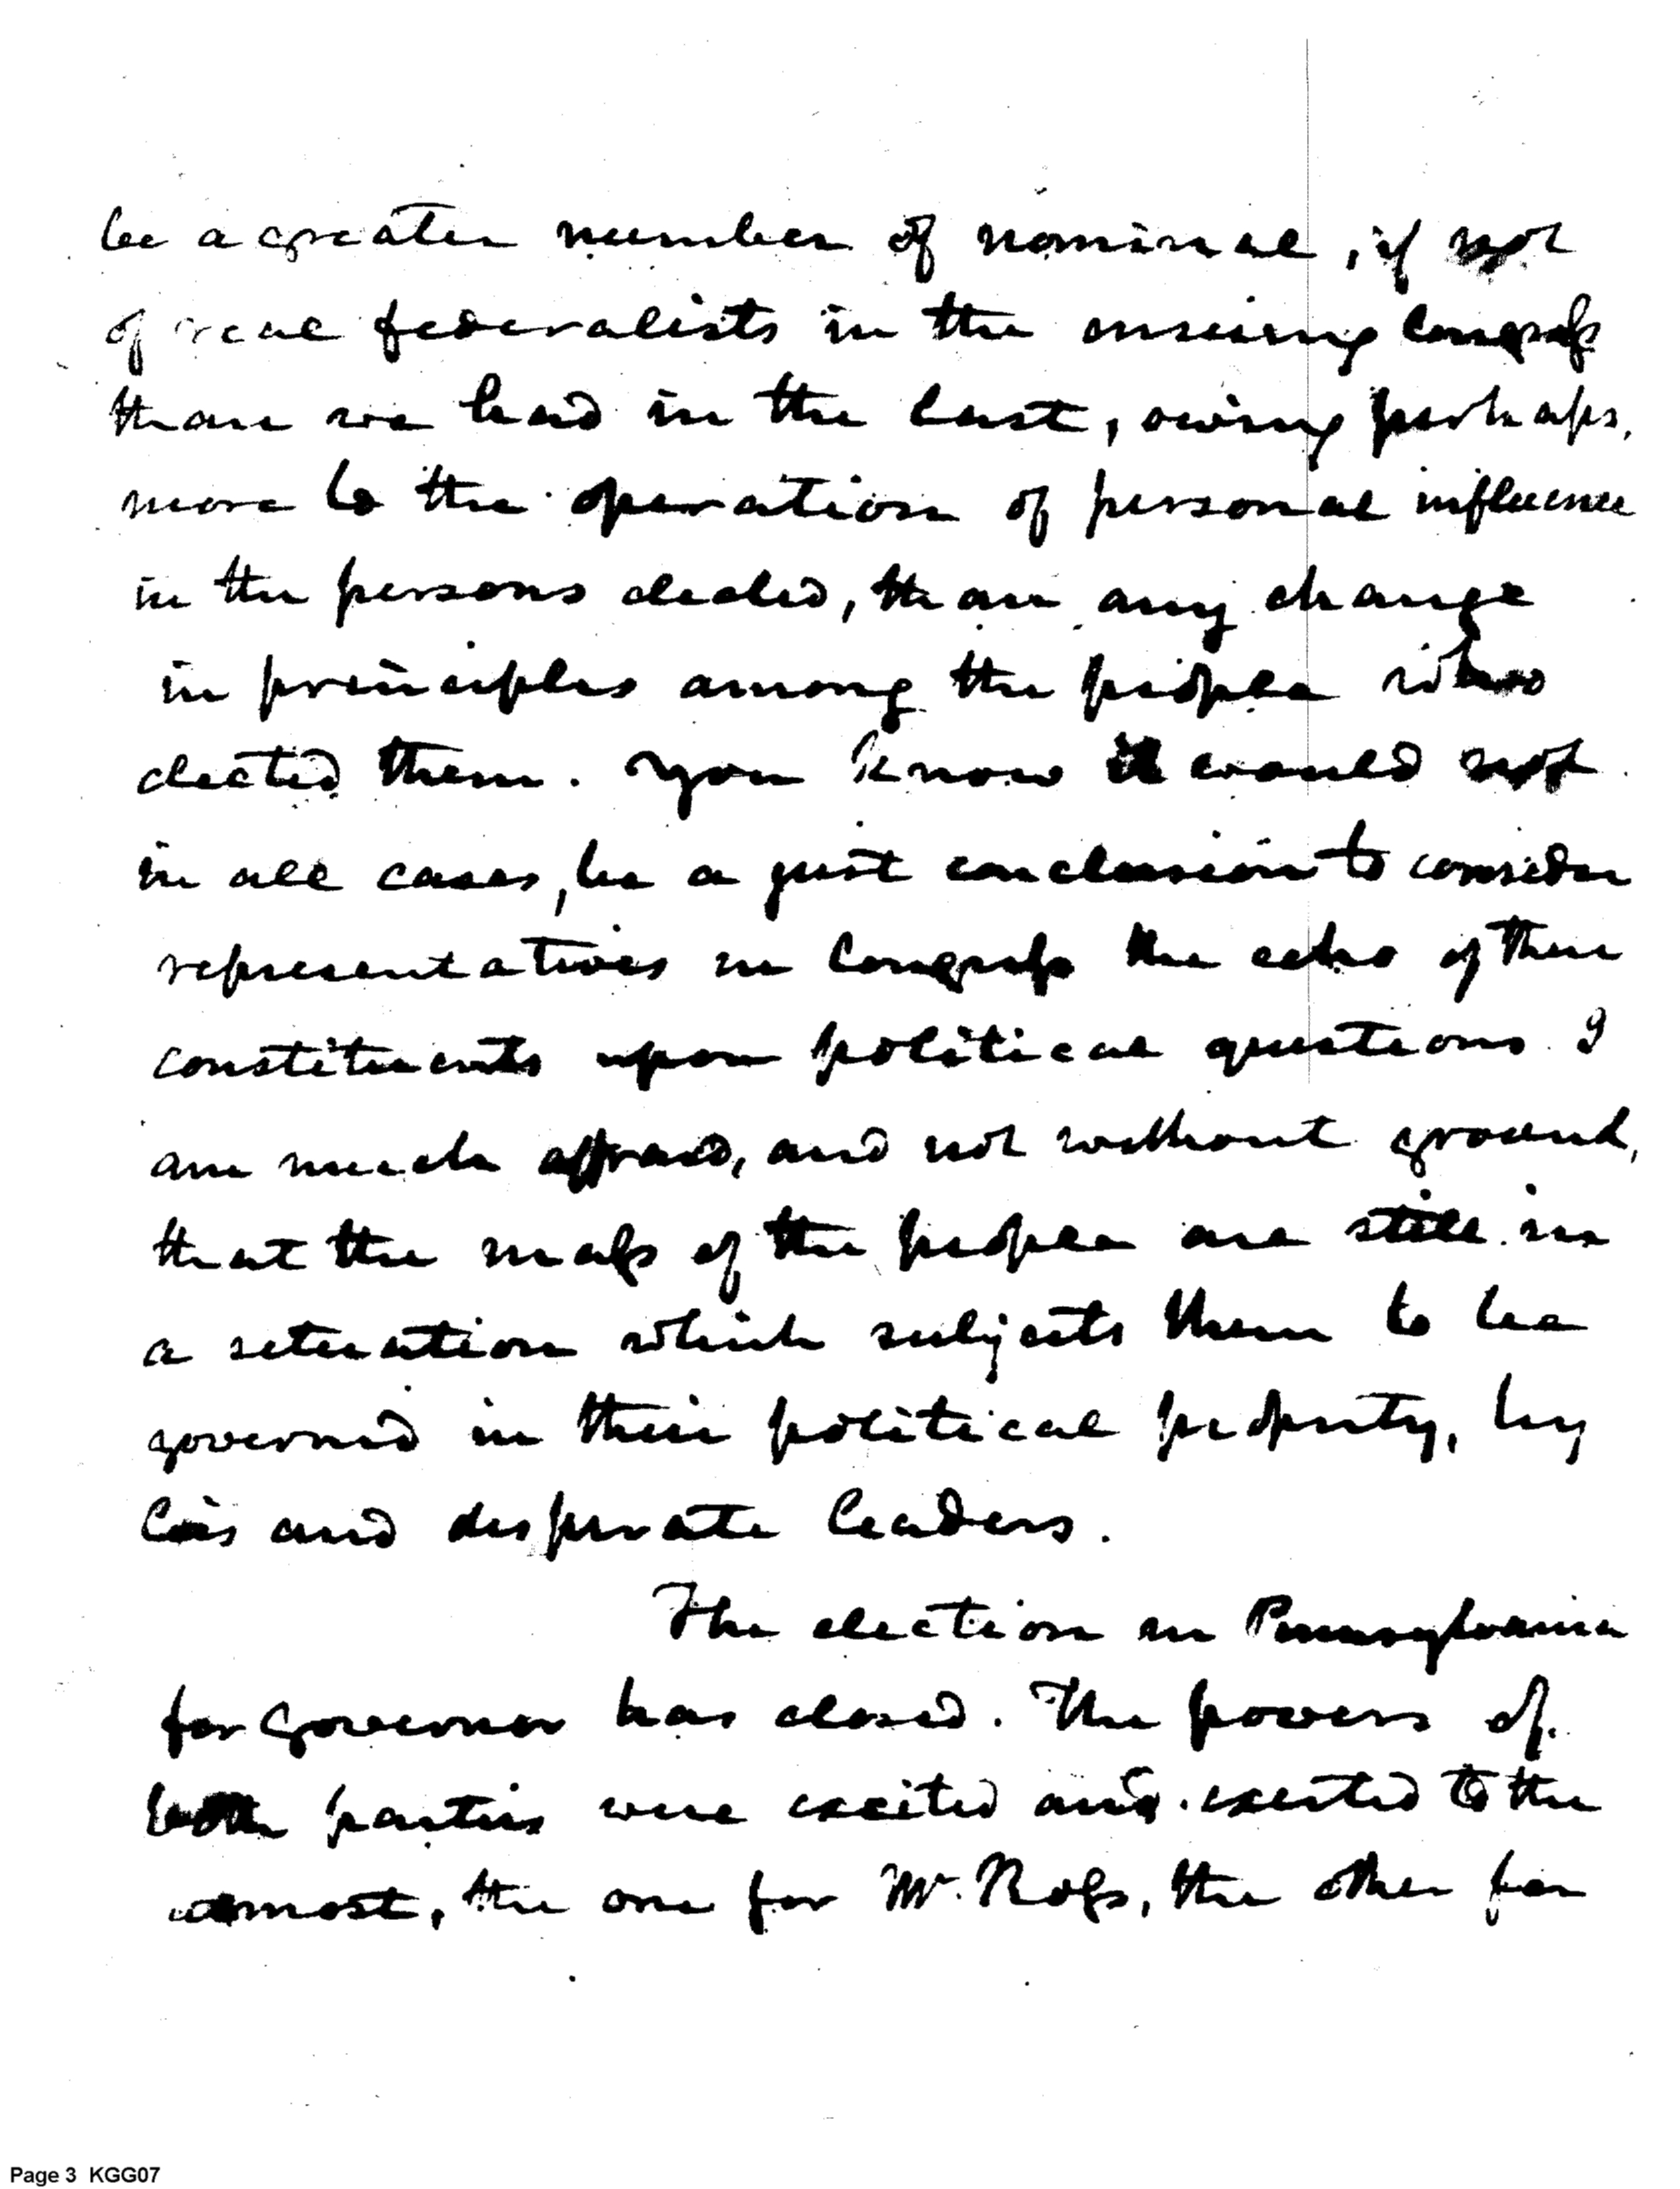 be a greater number of nominal, if not
of real federalists in the ensuing Congress
than we had in the last, owing perhaps,
more to the operation of personal influence
in the persons elected, than any change
in principles among the people who
elected them. You know it would not
in all cases, be a just conclusion to consider
representatives in Congress the echo of their
constituents upon political questions. I
am much affraid, and not without ground,
that the mass of the people are still in
a situation which subjects them to be
governed in their political property, by
lies and desperate leaders.
The election in Pennsylvania
for Governor has closed. The powers of
both parties were excited and exerted to the
utmost, the one for Mr. Ross, the other for
Page 3 KGG07